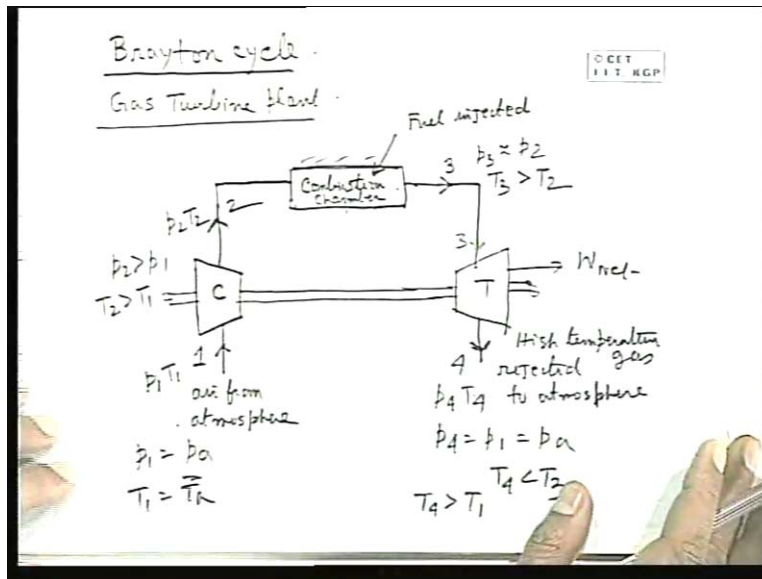 Brayton cycle.
Gas Turbine plant.
© CET
I.I.T. KGP
Fuel injected
Combustion
chamber
3
p₃ ≈ p₂
T₃ > T₂
2
p₂T₂
3
p₂ > p₁
T₂ > T₁
C
T
Wnet
1
p₁T₁
air from
atmosphere
4
High temperature
gas
rejected
to atmosphere
p₄T₄
p₁ = pa
T₁ = Ta
p₄ = p₁ = pa
T₄ < T₃
T₄ > T₁